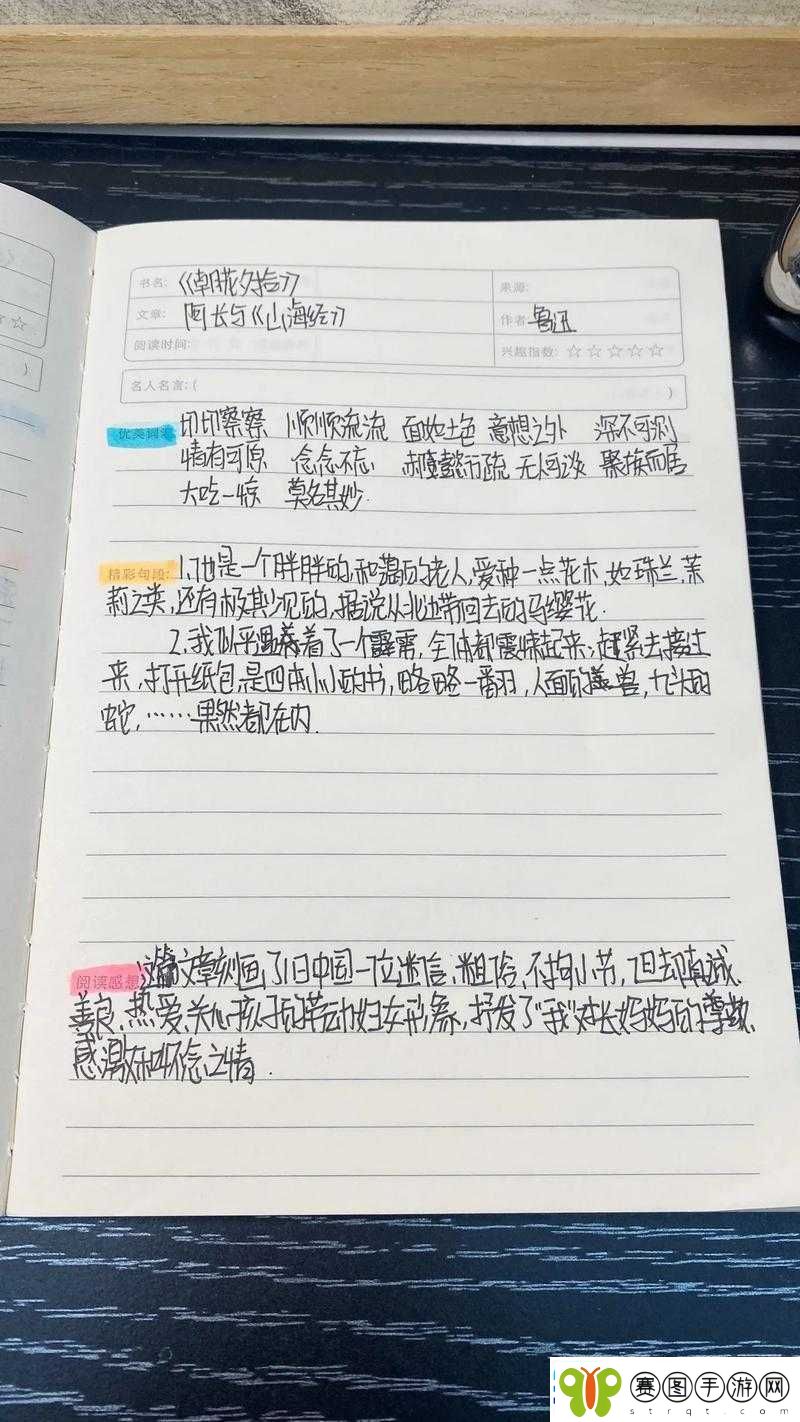 书名:《朝花夕拾》 来源:
文章: 阿长与《山海经》 作者 鲁迅
阅读时间: 兴趣指数: ☆☆☆☆☆
名人名言:( )
优美词 切切察察 顺顺流流 面如土色 意想之外 深不可测
情有可原 念念不忘 疏懒 无人可谈 聚族而居
大吃一惊 莫名其妙.
精彩句段: 1.他是一个胖胖的,和蔼的老人,爱种一点花木,如珠兰,茉
莉之类,还有极其少见的,据说从北边带回去的马缨花.
2.我似乎遇着了一个霹雳,全体都震悚起来;赶紧去接过
来,打开纸包,是四本小小的书,略略一翻,人面的兽,九头的
蛇,……果然都在内.
阅读感想 这篇文章刻画了旧中国一位迷信、粗俗、不拘小节,但却真诚、
善良、热爱、关心孩子的劳动妇女形象,抒发了“我”对长妈妈的尊敬、
感激和怀念之情.
赛图手游网
strqt.com